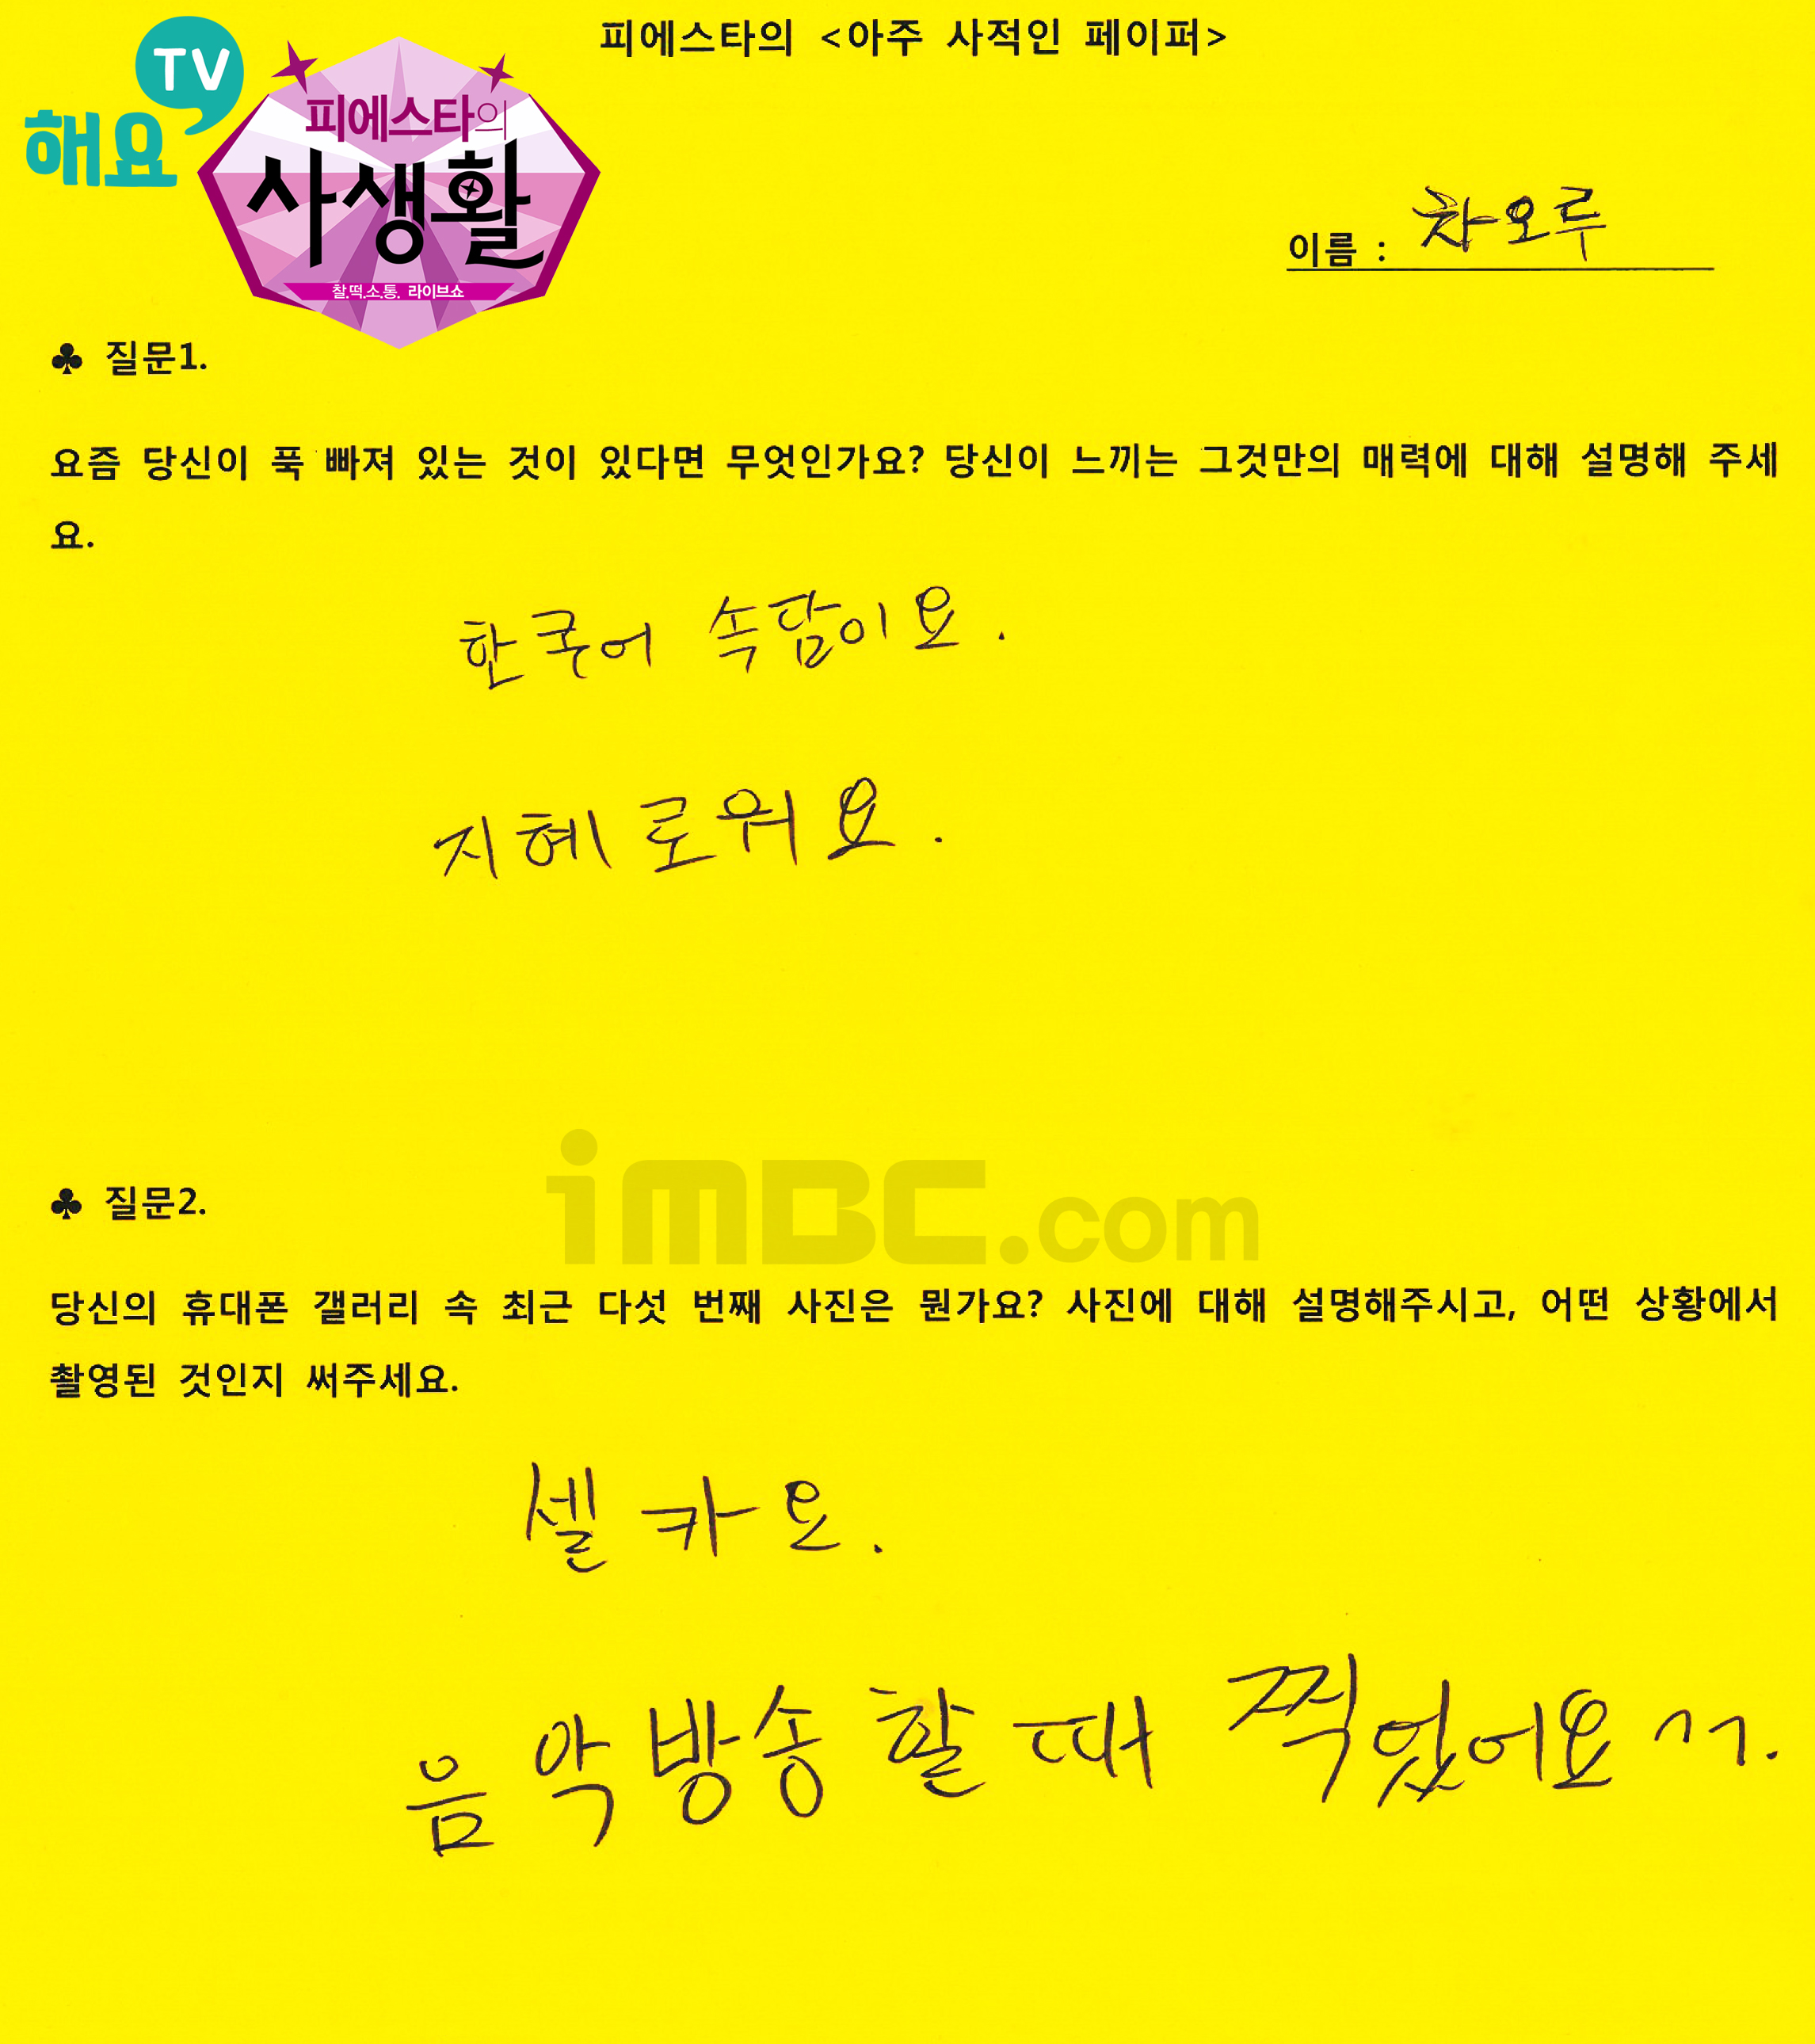 피에스타의 <아주 사적인 페이퍼>
TV
해요
피에스타의
사생활
찰.떡.소.통. 라이브쇼
이름 : 차오루
♣ 질문1.
요즘 당신이 푹 빠져 있는 것이 있다면 무엇인가요? 당신이 느끼는 그것만의 매력에 대해 설명해 주세
요.
한국어 속담이요.
지혜로워요.
iMBC.com
♣ 질문2.
당신의 휴대폰 갤러리 속 최근 다섯 번째 사진은 뭔가요? 사진에 대해 설명해주시고, 어떤 상황에서
촬영된 것인지 써주세요.
셀카요.
음악방송할 때 찍었어요 ㄱㄱ.